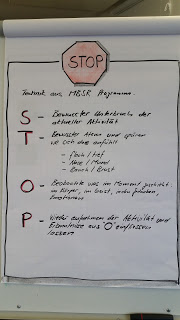 STOP
Technik aus MBSR Programm
S - Bewusster Unterbruch der
aktueller Aktivität
T - Bewusster Atem und spüren
wie sich das anfühlt
- flach / tief
- Nase / Mund
- Bauch / Brust
O - Beobachte was im Moment geschieht
im Körper, im Geist, mein
Emotionen
P - Wieder aufnehmen der Aktivität und
Erkenntnisse aus "O" einfliessen
lassen